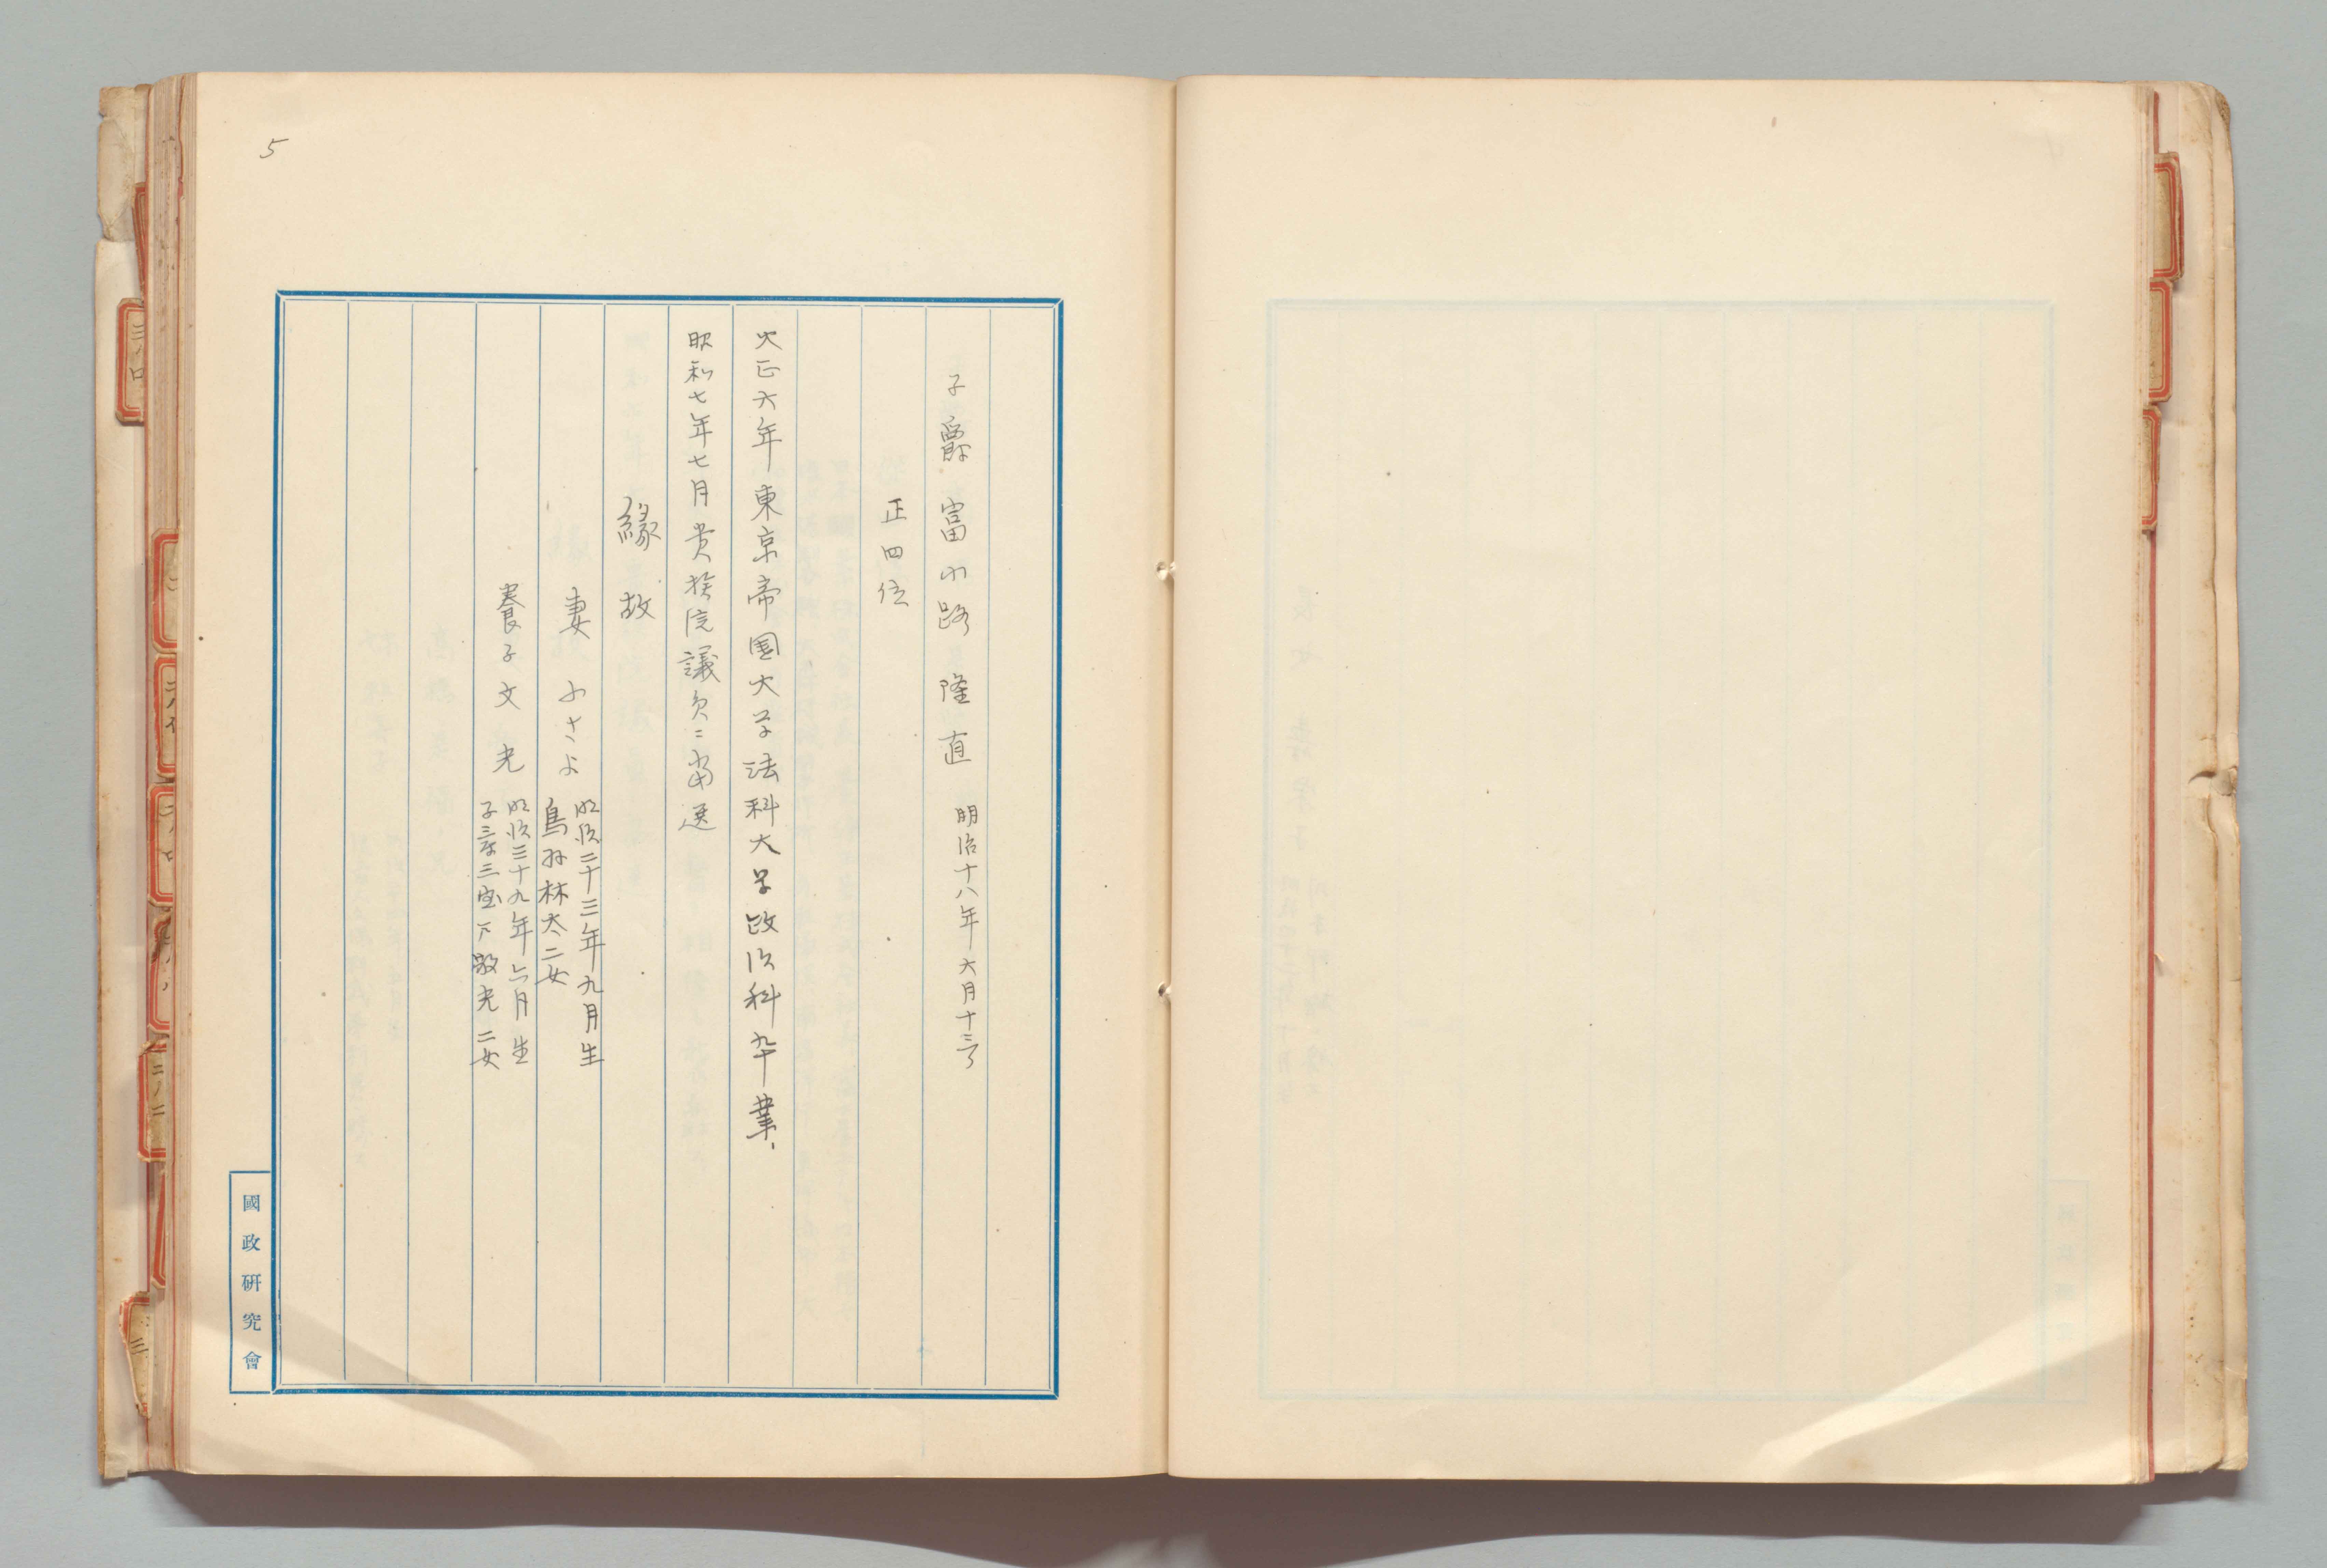 5
子爵 富小路 隆直 明治十八年六月十三日
正四位
大正六年東京帝国大学法科大学政治科卒業、
昭和七年七月貴族院議員ニ当選
縁故
妻 ふさよ 明治二十三年九月生
鳥羽林太二女
養子 文光 明治三十九年六月生
子三室戸敬光二女
國政研究會